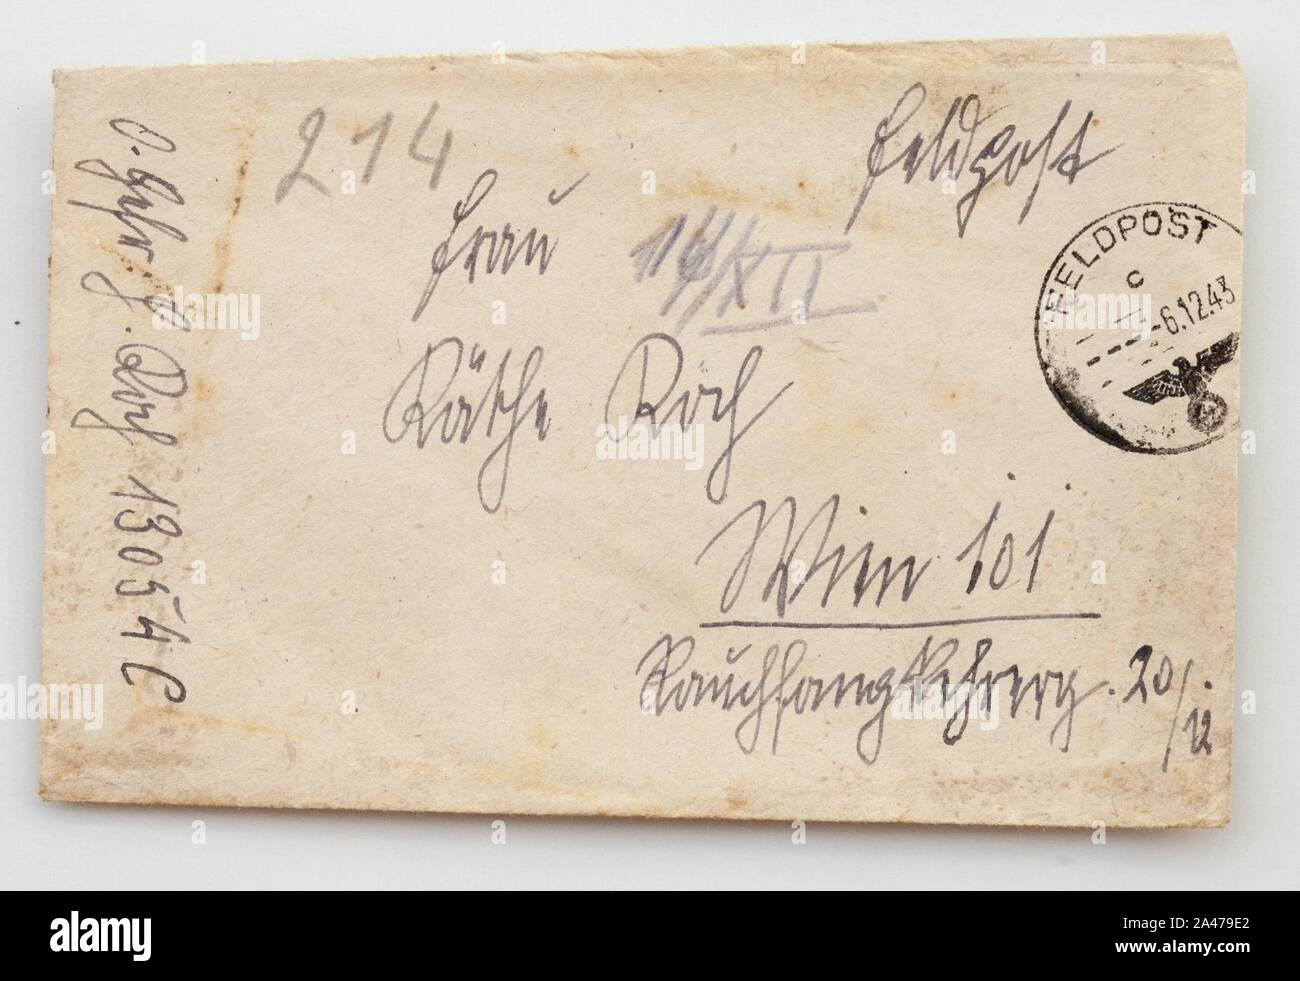 214
Feldpost
Frau
14/XII
FELDPOST
c
-6.12.43
Käthe Koch
Wien 101
Rauchfangkehrerg. 20/.
/12
13054 C
alamy
Image ID: 2A479E2
www.alamy.com